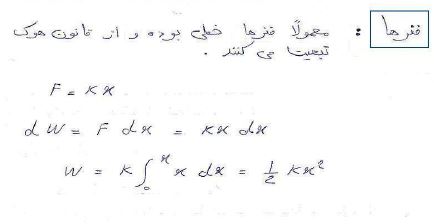 فنرها : معمولاً فنرها خطی بوده و از قانون هوک
تبعیت می کنند .
F = Kx
dW = F dx = Kx dx
W = K ∫₀ˣ x dx = ½ Kx²